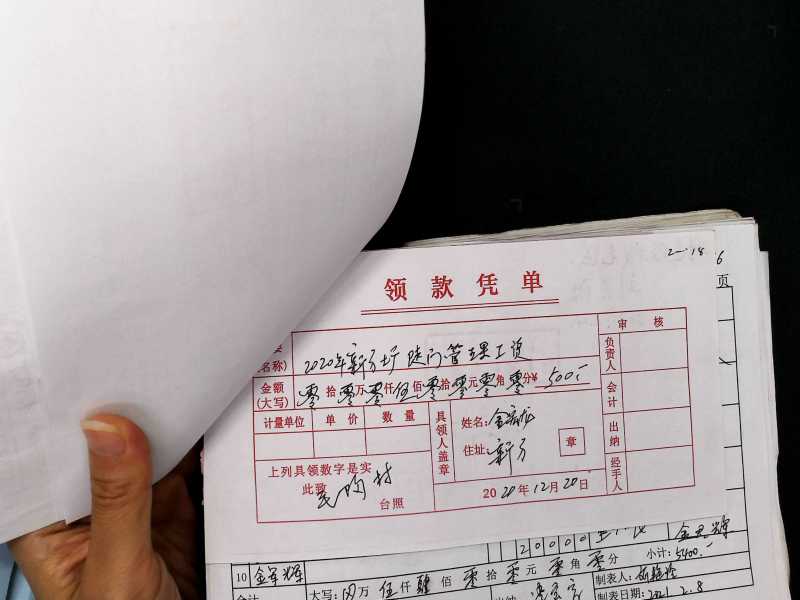 2-18
6
页
领款凭单
名称)
2020年新方圩陡门管理工资
审核
负责人
金额(大写)
零拾零万零仟伍佰零拾零元零角零分¥ 500.-
会计
计量单位 单价 数量
具领人盖章
姓名:
住址:新方
章
出纳
上列具领数字是实
此致
村
台照
2020年12月20日
经手人
20000
小计:5400.-
10 金军辉
大写:四万伍仟肆佰零拾零元零角零分
制表人:
制表日期:2021.2.8